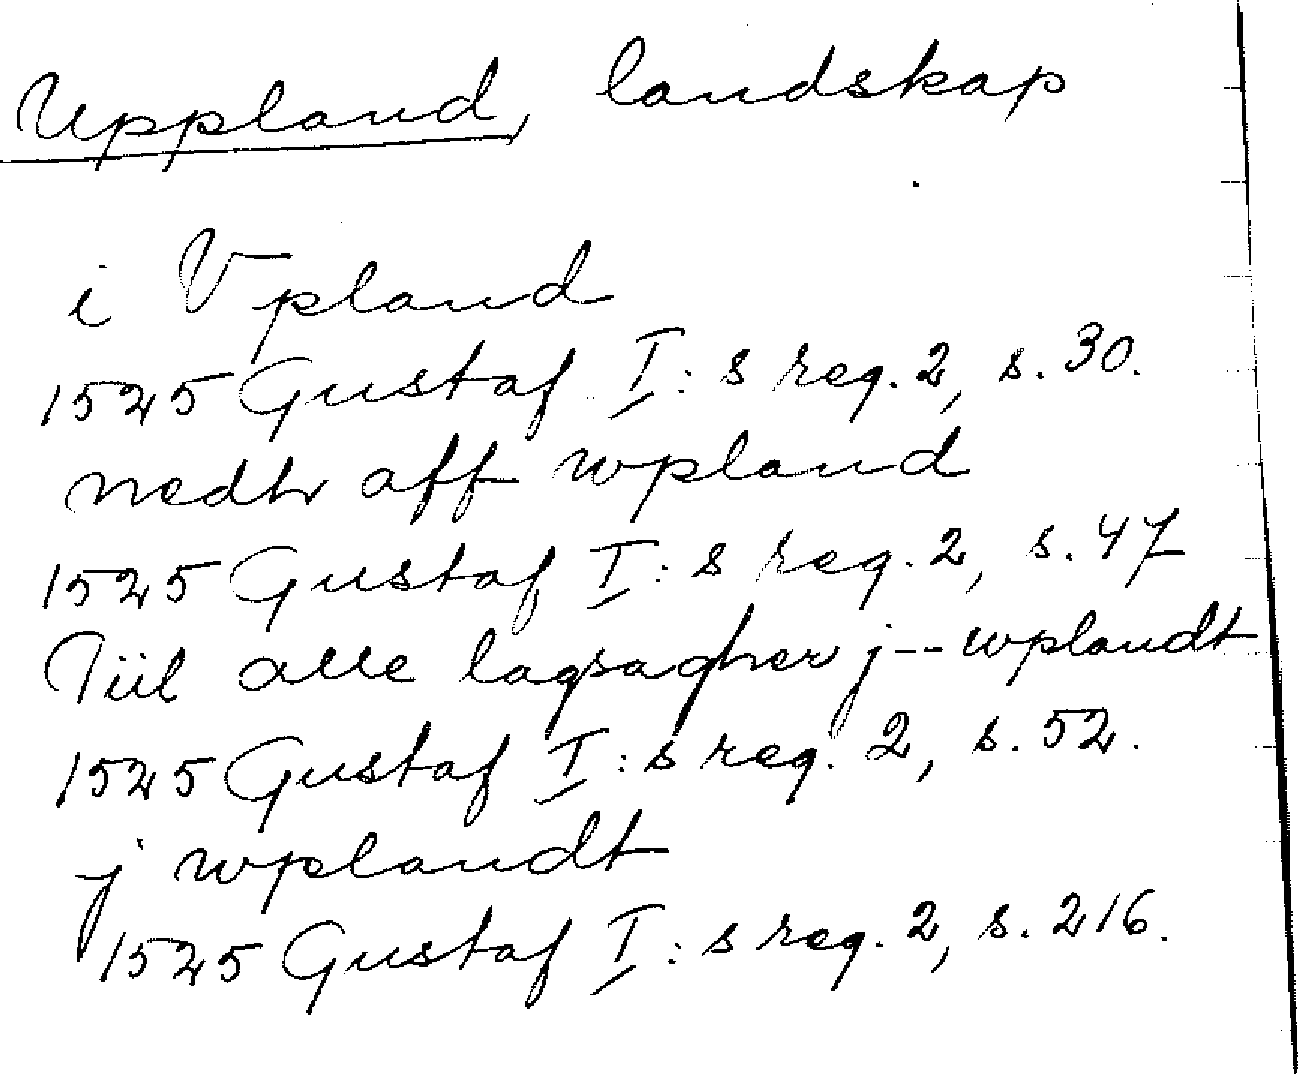 Uppland, landskap
i Vpland
1525 Gustaf I:s reg. 2, s. 30.
nedtr aff wpland
1525 Gustaf I:s reg. 2, s. 47
Tiil alle lagsagher j -- wplandt
1525 Gustaf I:s reg. 2, s. 52.
j wplandt
1525 Gustaf I:s reg. 2, s. 216.